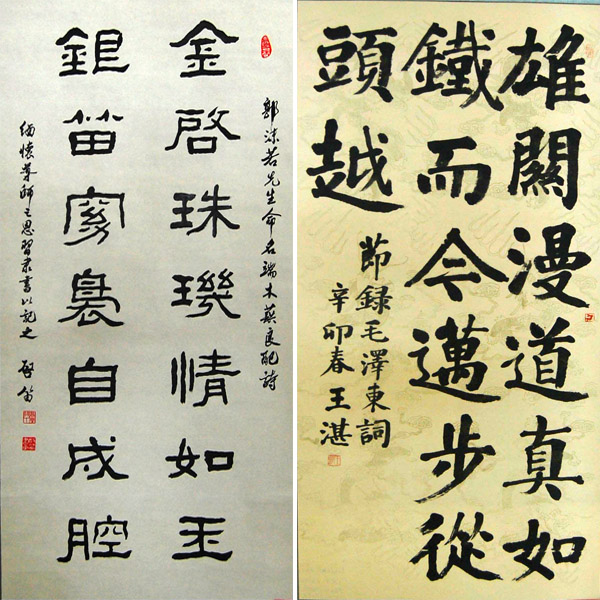 郭沫若先生命名端木蕻良配詩
金啓珠璣情如玉
銀笛自成腔
緬懷尊師之恩習隸書以記之 啓笛
雄關漫道真如
鐵而今邁步從
頭越
節録毛澤東詞
辛卯春 王湛